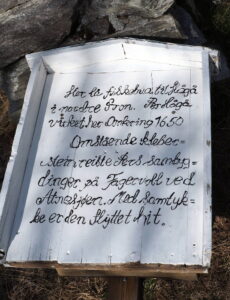 Her la fiskebua til Hågå
i nordre Fron. Per Hågå
virket her omkring 1650
Omstisende kleber-
steinreiste Fers sambyg-
dinger på Fagervoll ved
Atnasjøen. Med samtyk-
ke er den flyttet hit.